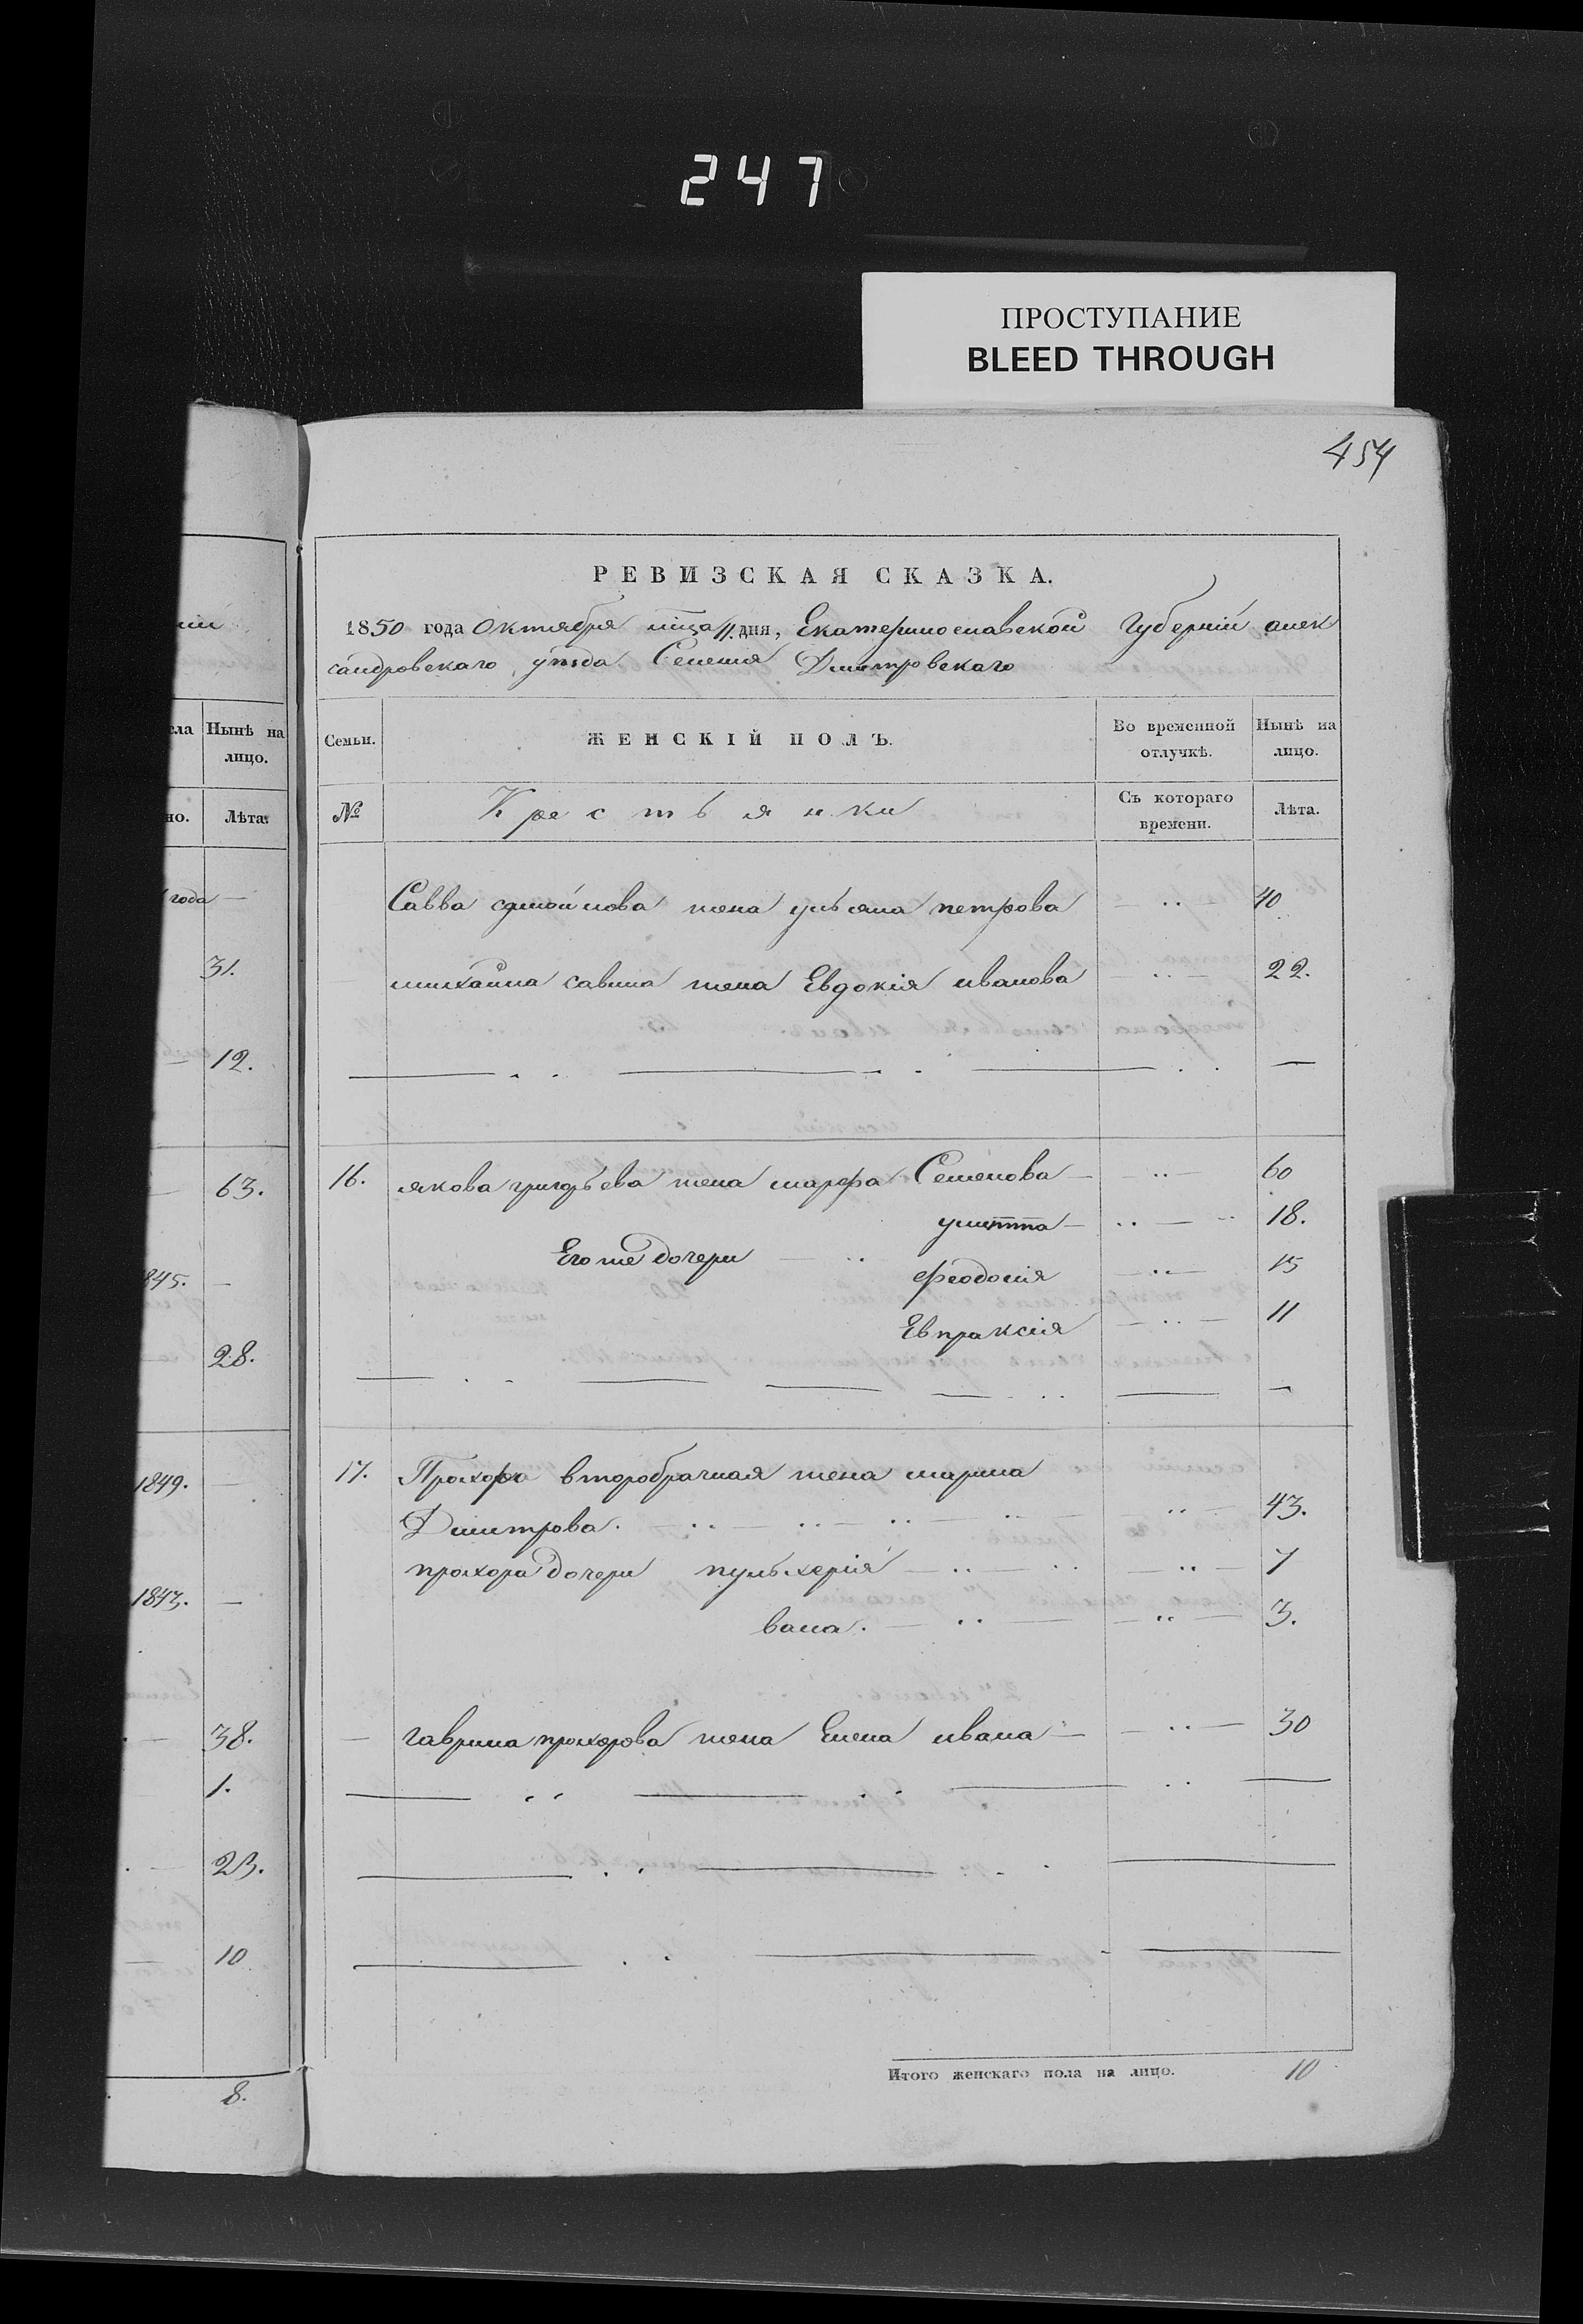 247
ПРОСТУПАНИЕ
BLEED THROUGH
454
РЕВИЗСКАЯ СКАЗКА.
1850 года Октября мца 11 дня, Екатеринославской Губерніи алек
сандровскаго уѣзда Селенія Дмитровскаго
Семьи.
ЖЕНСКІЙ ПОЛЪ.
Во временной отлучкѣ.
Нынѣ на лицо.
№
Крестьянки
Съ котораго времени.
Лѣта.
Савва жена ульяна петрова 40
михаила савина жена Евдокія иванова 22.
16. якова григорьева жена марфа Семенова 60
улитта 18.
Его же дочери
феодосія 15
Евпраксія 11
17. Прохора второбрачная жена марина
Дмитрова. 43.
прохора дочери пульхерія 7
3.
гаврила прохорова жена Елена ивана 30
Итого женскаго пола на лицо. 10
ела
Нынѣ на лицо.
но.
Лѣта.
года
31.
12.
63.
845.
28.
1849.
1843.
38.
1.
23.
10
8.